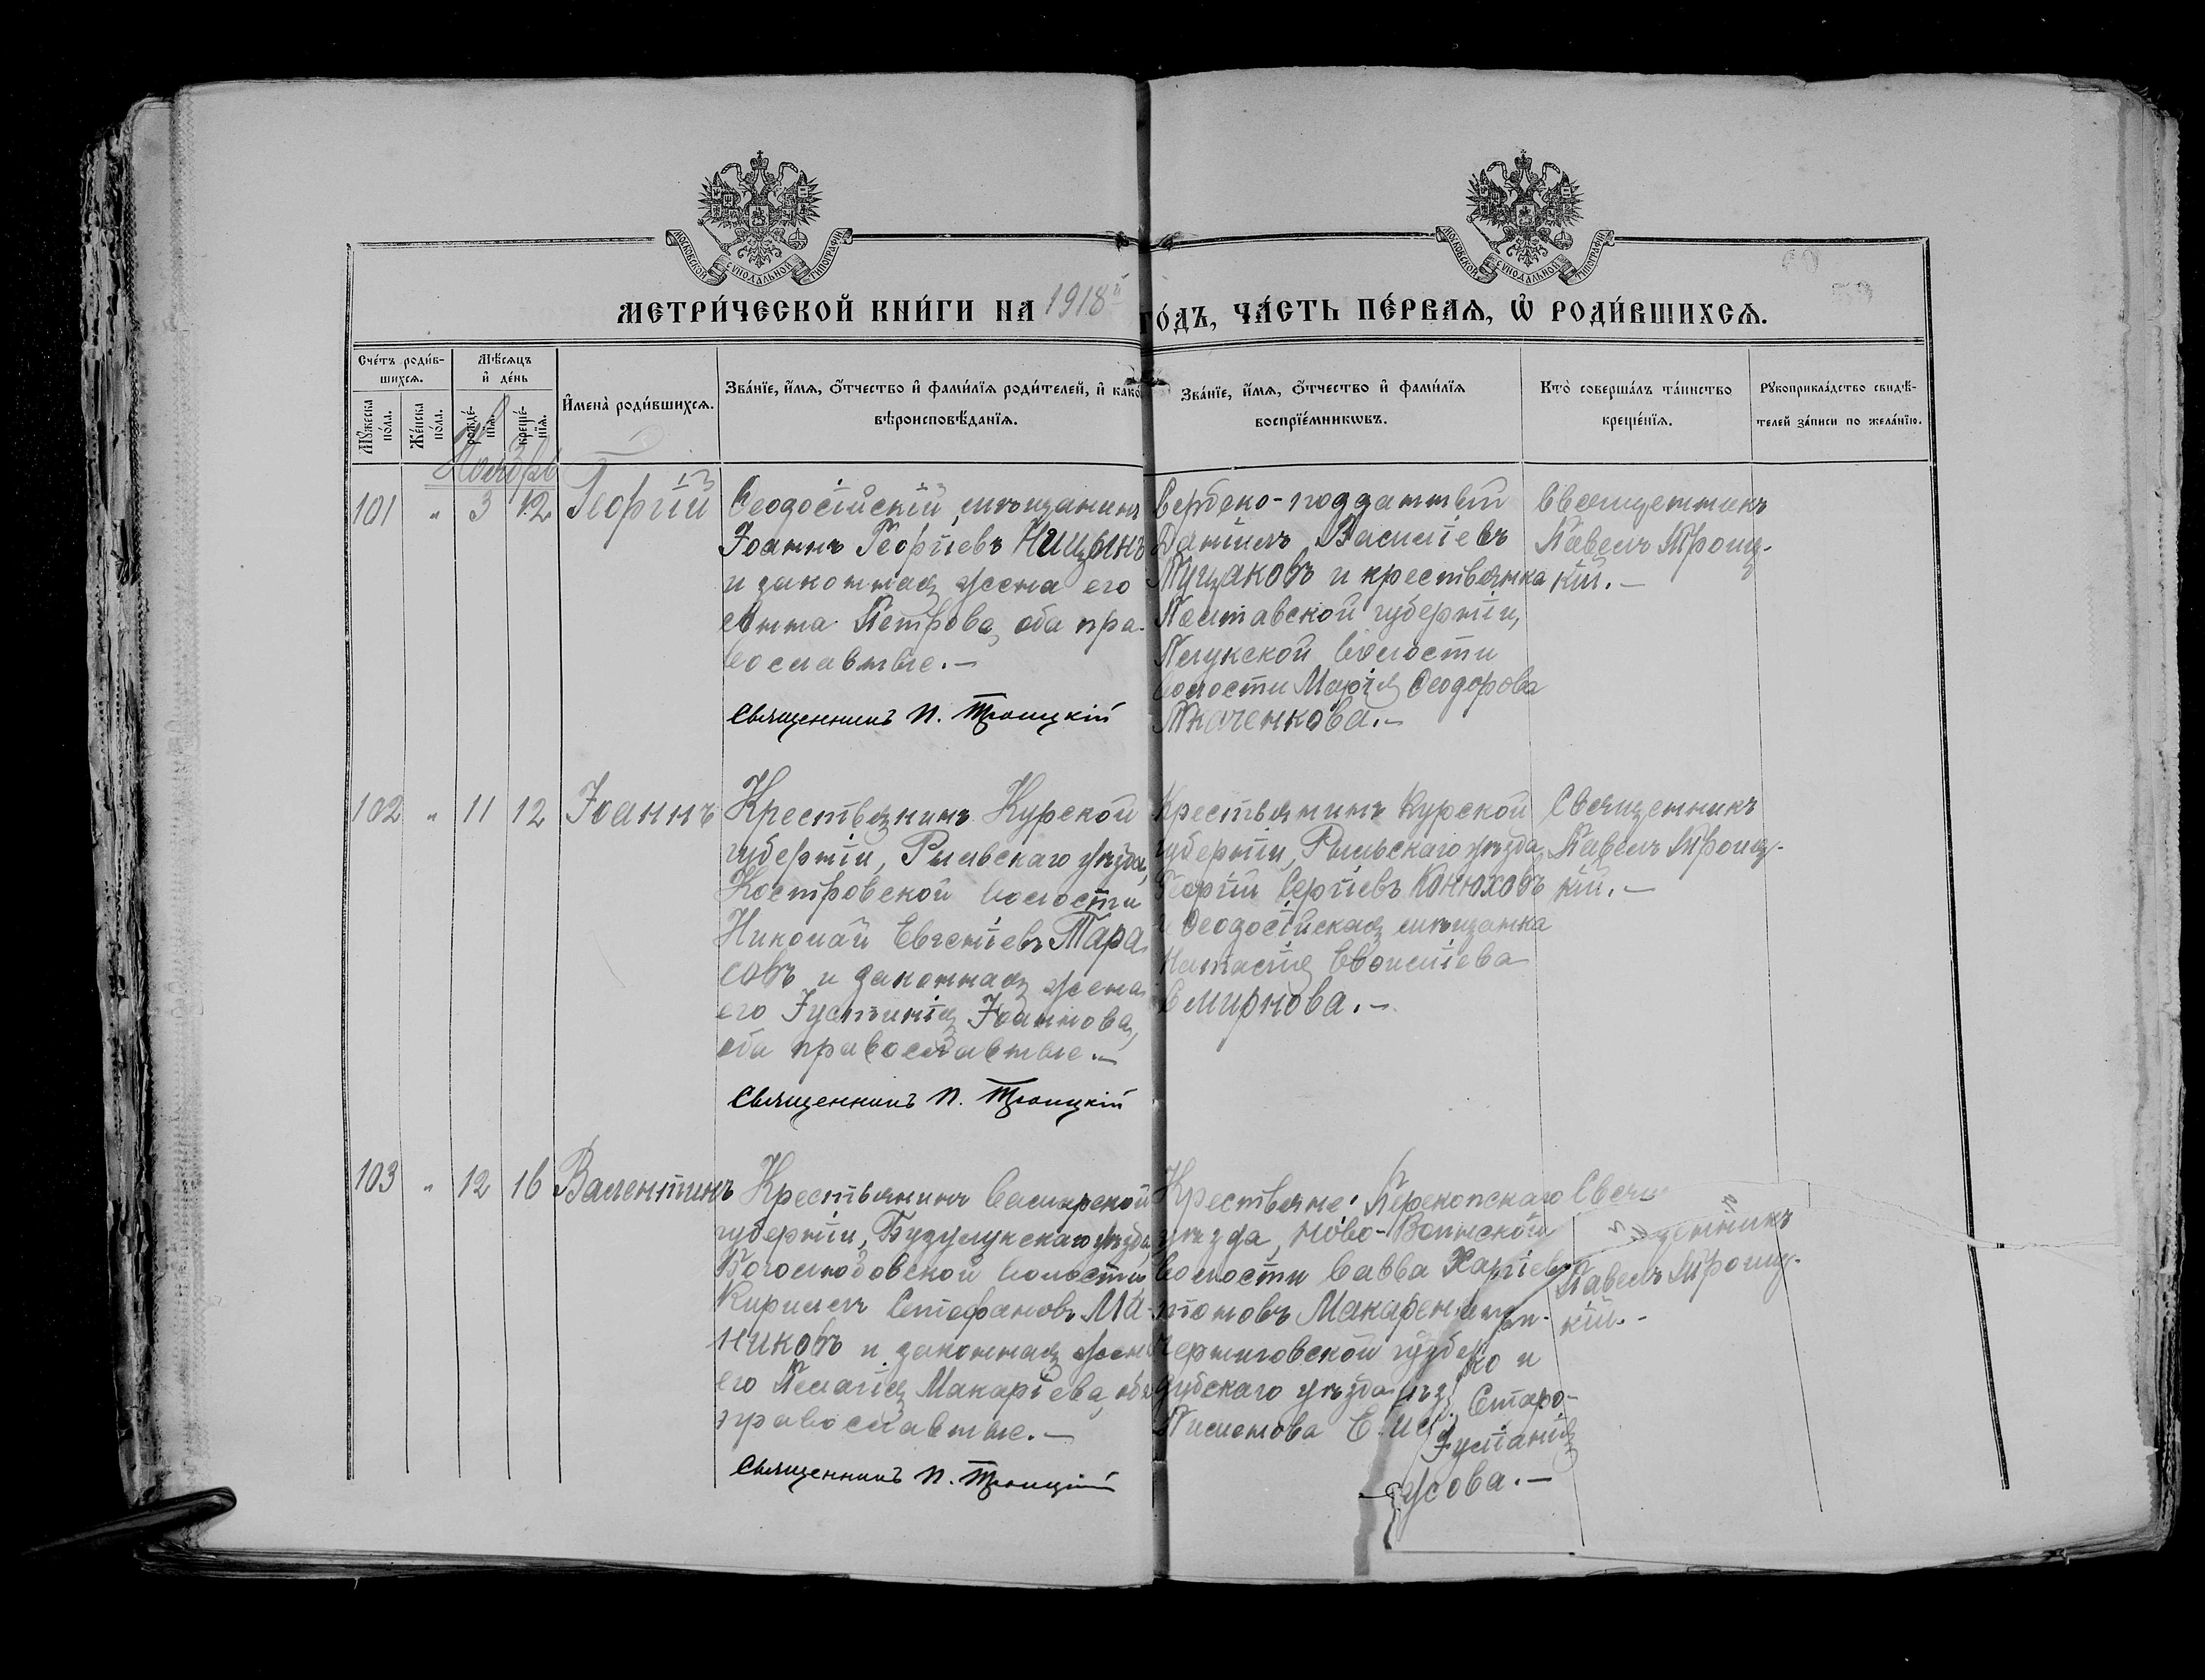 МОСКОВСКОЙ СѴНОДАЛЬНОЙ ТИПОГРАФІИ
МОСКОВСКОЙ СѴНОДАЛЬНОЙ ТИПОГРАФІИ
МЕТРИ́ЧЕСКОЙ КНИ́ГИ НА 1918й
ГО́ДЪ, ЧА́СТЬ ПЕ́РВАѦ, Ѡ҆ РОДИ́ВШИХСѦ.
Сче́тъ роди́в-
шихсѧ.
Мꙋ́жеска по́ла.
Же́нска по́ла.
Мѣ́сѧцъ
и҆ де́нь
рожде́-
нїѧ.
креще́-
нїѧ.
И҆мена̀ роди́вшихсѧ.
Зва́нїе, и҆́мѧ, ѻ҆́тчество и҆ фами́лїѧ роди́телей, и҆ како́
вѣроисповѣ́данїѧ.
Зва́нїе, и҆́мѧ, ѻ҆́тчество и҆ фами́лїѧ
воспрїе́мникѡвъ.
Кто̀ соверша́лъ та́инство
креще́нїѧ.
Рꙋкоприкла́дство свидѣ́-
телей за́писи по жела́нїю.
Ноябрь
101 " 3 12 Георгій 13
Ѳеодосійскій мѣщанинъ
Іоаннъ Георгіевъ Ницынъ
и законная жена его
Анна Петрова, оба пра-
вославные.—
Священникъ П. Троицкій
Сербско-подданный
Даніилъ Василіевъ
Пуцаковъ и крестьянка
Полтавской губерніи,
волости
волости Марія Ѳеодорова
Ткаченкова.—
Священникъ
Павелъ Троиц-
кій.—
102 " 11 12 Іоаннъ
Крестьянинъ Курской
губерніи, Рыльскаго уѣзда,
Костровской волости
Николай Евгеніевъ Тара
совъ и законная жена
его Іустинія Іоаннова,
оба православные.—
Священникъ П. Троицкій
Крестьянинъ Курской
губерніи, Рыльскаго уѣзда
Георгій Сергіевъ Конюховъ
и Ѳеодосійская мѣщанка
Смирнова.—
Священникъ
Павелъ Троиц-
кій.—
103 " 12 16 Валентинъ
Крестьянинъ Самарской
губерніи, Бузулукскаго уѣзда,
Боголюбовской волости
Кириллъ Стефановъ Ма-
никовъ и законная жена
его Пелагія Макаріева, оба
православные.—
Священникъ П. Троицкій
Крестьяне: Перекопскаго
уѣзда, Ново-
волости Савва
Макарен
Черниговской губер
ко и
дубскаго уѣзда
Старо-
Іуліанія
усова.—
Свящ
енникъ
Павелъ Троиц-
кій.-